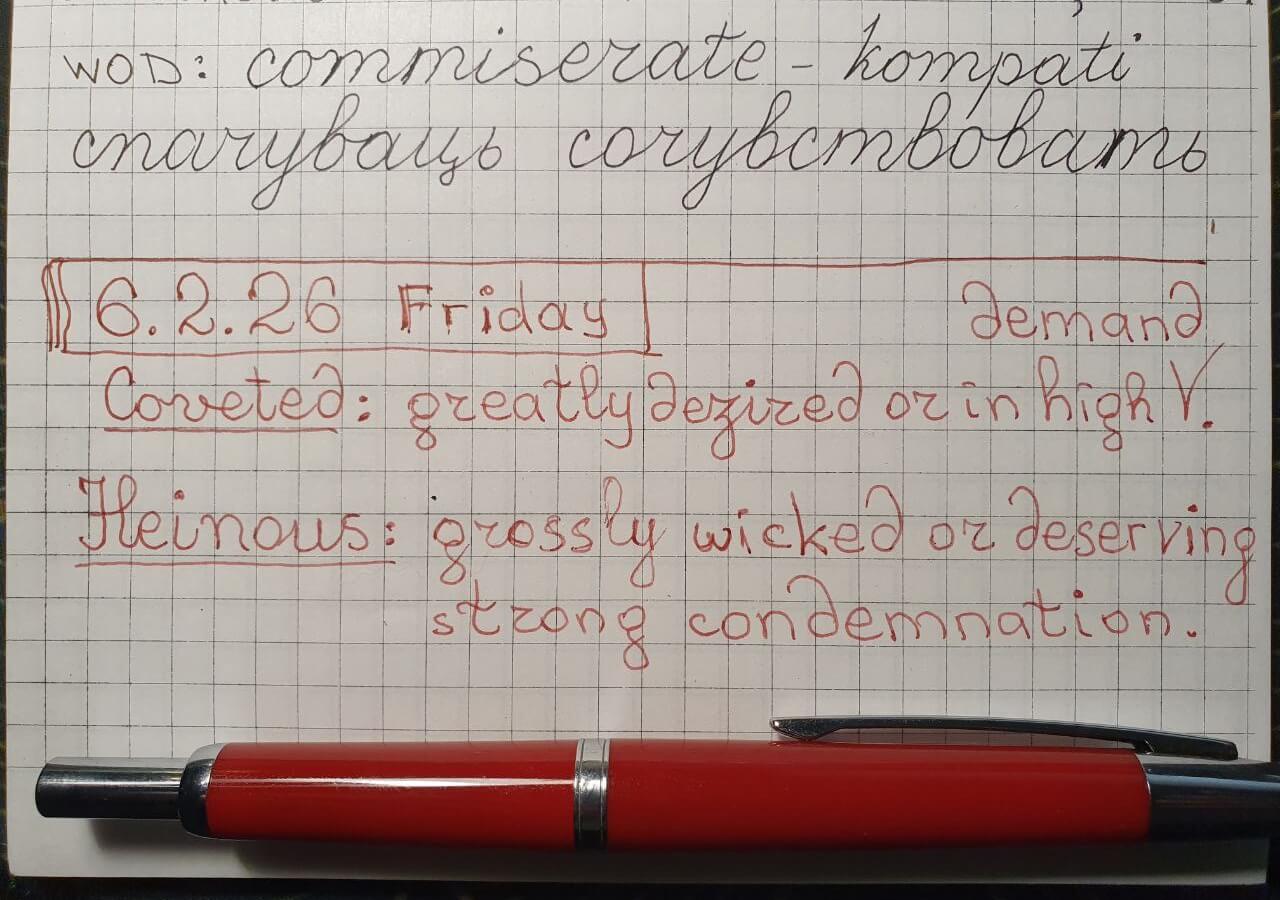 WOD: commiserate - kompati
спачуваць сочувствовать
6.2.26 Friday
demand
Coveted: greatly dezired or in high V.
Heinous: grossly wicked or deserving
strong condemnation.